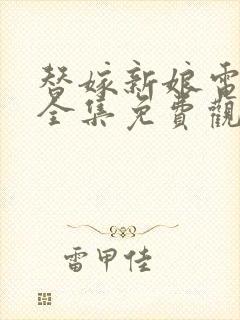 替嫁新娘電
全集免費觀
雷甲佳